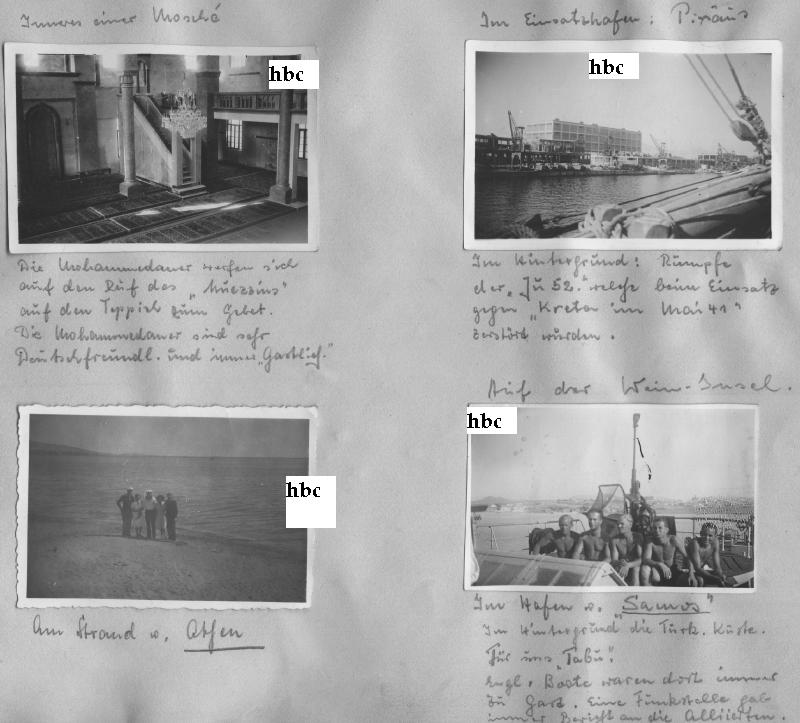 Inneres einer Moschè
hbc
Die Mohammedaner werfen sich
auf den Ruf des "Muezzins"
auf den Teppich zum Gebet.
Die Mohammedaner sind sehr
Deutschfreundl. und immer "Gastlich."
hbc
Am Strand v. Athen
Im Einsatzhafen: Piräus
hbc
Im Hintergrund: Rümpfe
der "Ju 52." welche beim Einsatz
gegen "Kreta im Mai 41"
zerstört wurden.
Auf der Wein-Insel.
hbc
Im Hafen v. "Samos"
Im Hintergrund die Türk. Küste.
Für uns "Tabu".
Engl. Boote waren dort immer
zu Gast. Eine Funkstelle gab
immer Bericht an die Alliierten.